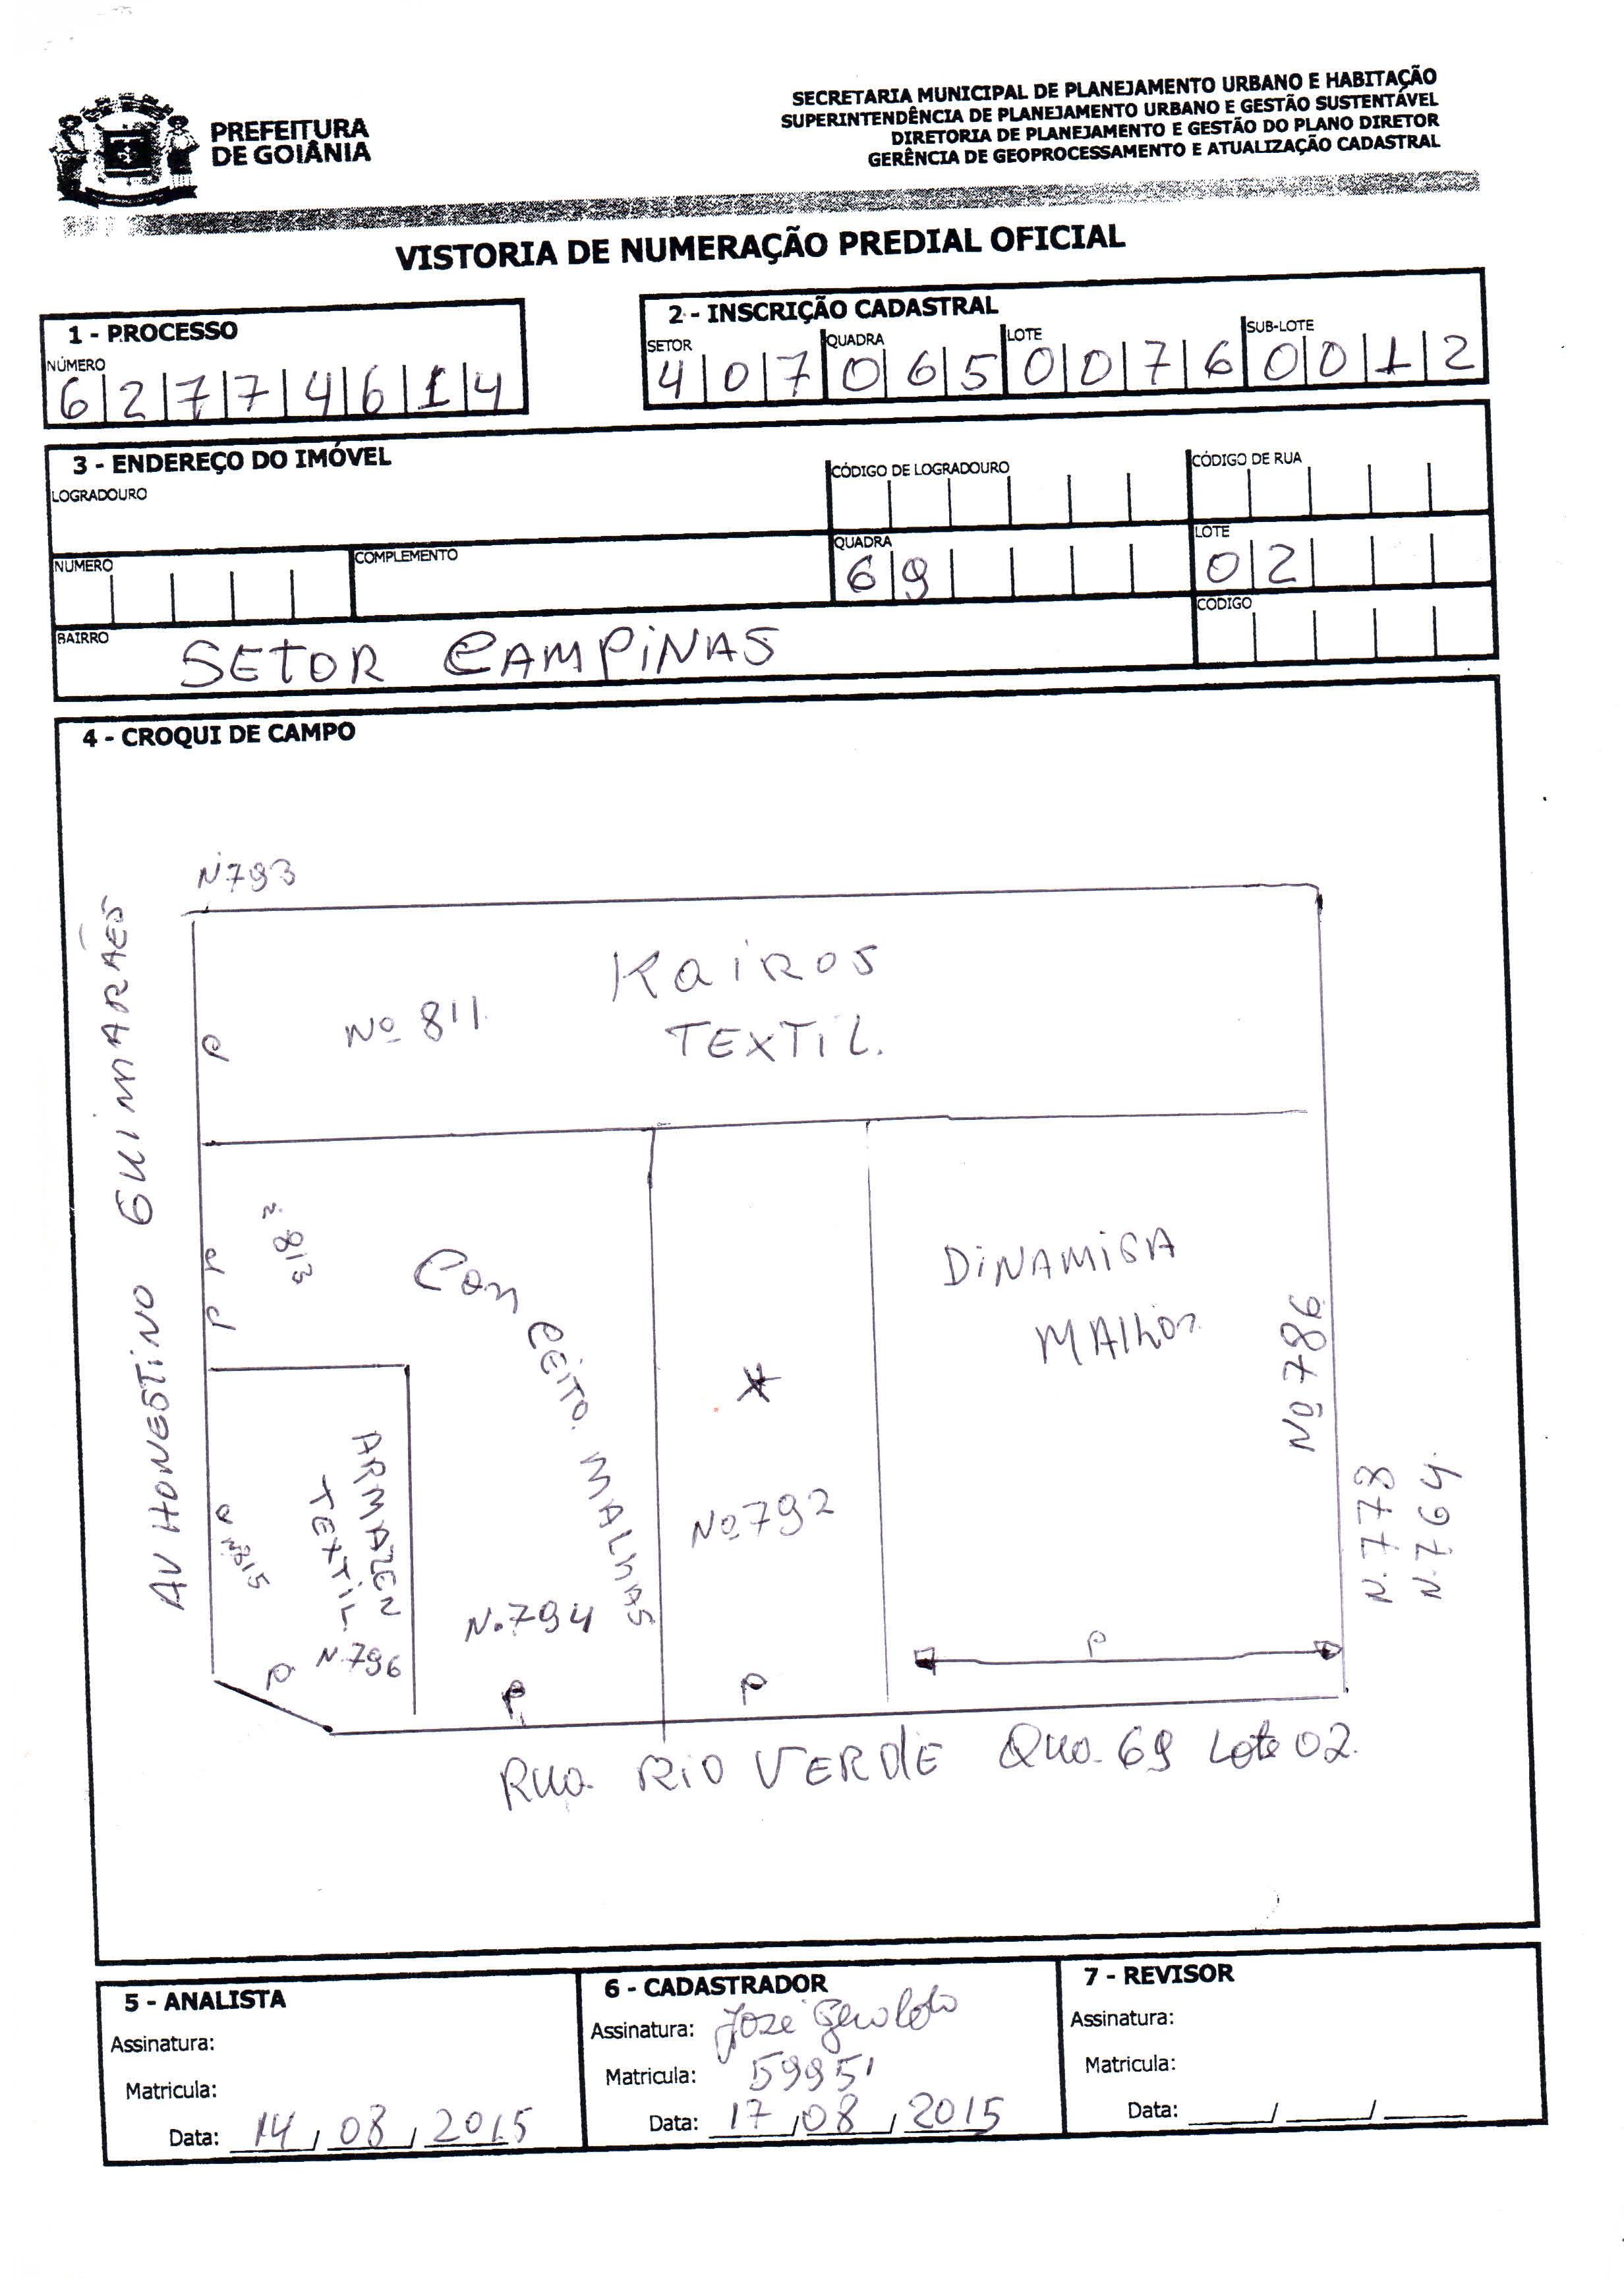 PREFEITURA
DE GOIÂNIA
SECRETARIA MUNICIPAL DE PLANEJAMENTO URBANO E HABITAÇÃO
SUPERINTENDÊNCIA DE PLANEJAMENTO URBANO E GESTÃO SUSTENTÁVEL
DIRETORIA DE PLANEJAMENTO E GESTÃO DO PLANO DIRETOR
GERÊNCIA DE GEOPROCESSAMENTO E ATUALIZAÇÃO CADASTRAL
VISTORIA DE NUMERAÇÃO PREDIAL OFICIAL
1 - PROCESSO
NÚMERO
6 2 7 7 4 6 1 4
2 - INSCRIÇÃO CADASTRAL
SETOR QUADRA LOTE SUB-LOTE
4 0 7 0 6 5 0 0 7 6 0 0 1 2
3 - ENDEREÇO DO IMÓVEL
LOGRADOURO
CÓDIGO DE LOGRADOURO
CÓDIGO DE RUA
NÚMERO
COMPLEMENTO
QUADRA
6 9
LOTE
0 2
BAIRRO
SETOR CAMPINAS
CÓDIGO
4 - CROQUI DE CAMPO
N793
AV HONESTINO GUIMARÃES
Kairos
TEXTIL.
Nº 811
P
N 813
Conceito. MALHAS
DINAMICA
MALHAS
Nº 786
P
ARMAZEN
TEXTIL
N 815
Nº 792
N. 778
N. 764.
N. 794
N. 796
P
P
P
P
Rua RIO VERDE Qua. 69 Lote 02.
5 - ANALISTA
Assinatura:
Matricula:
Data: 14 / 08 / 2015
6 - CADASTRADOR
Assinatura: José Geraldo
Matricula: 59951
Data: 17 / 08 / 2015
7 - REVISOR
Assinatura:
Matricula:
Data: ____/____/____